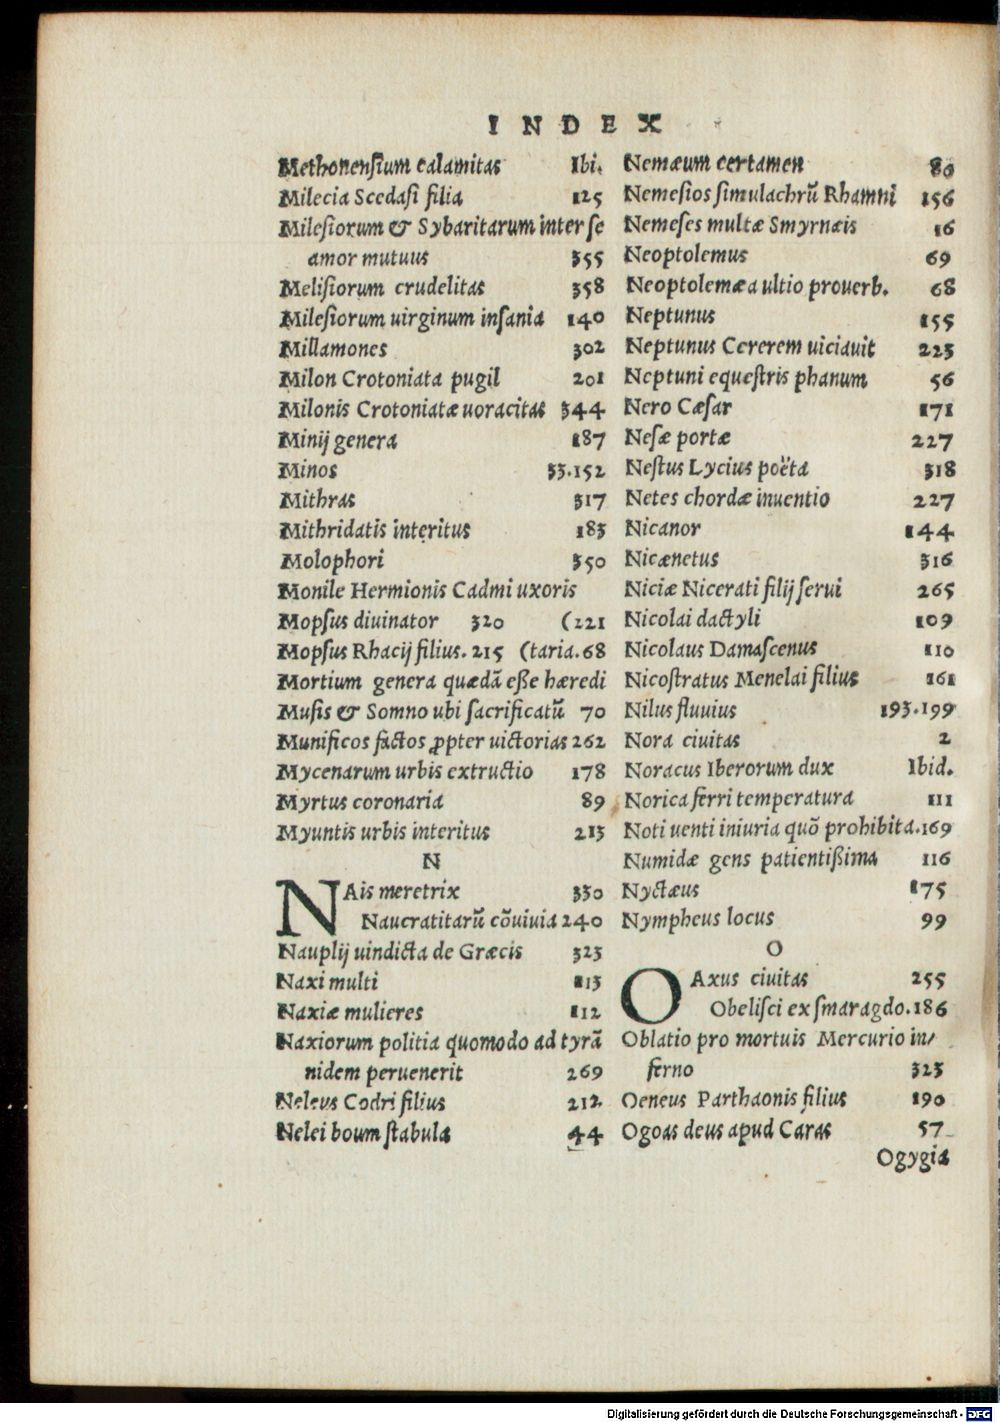 INDEX
Methonensium calamitas Ibi.
Milecia Scedasi filia 125
Milesiorum & Sybaritarum inter se
amor mutuus 355
Melisiorum crudelitas 358
Milesiorum uirginum insania 140
Millamones 302
Milon Crotoniata pugil 201
Milonis Crotoniatæ uoracitas 344
Minij genera 187
Minos 33.152
Mithras 317
Mithridatis interitus 183
Molophori 350
Monile Hermionis Cadmi uxoris
Mopsus diuinator 320 (221
Mopsus Rhacij filius. 215 (taria.68
Mortium genera quædā eße hæredi
Musis & Somno ubi sacrificatũ 70
Munificos factos ꝓpter uictorias 262
Mycenarum urbis extructio 178
Myrtus coronaria 89
Myuntis urbis interitus 213
N
NAis meretrix 330
Naucratitarũ cõuiuia 240
Nauplij uindicta de Græcis 323
Naxi multi 113
Naxiæ mulieres 112
Naxiorum politia quomodo ad tyrã
nidem peruenerit 269
Neleus Codri filius 212
Nelei boum stabula 44
Nemæum certamen 80
Nemesios simulachrũ Rhamni 156
Nemeses multæ Smyrnæis 16
Neoptolemus 69
Neoptolemæa ultio prouerb. 68
Neptunus 155
Neptunus Cererem uiciauit 223
Neptuni equestris phanum 56
Nero Cæsar 171
Nesæ portæ 227
Nestus Lycius poëta 318
Netes chordæ inuentio 227
Nicanor 144
Nicænetus 316
Niciæ Nicerati filij serui 265
Nicolai dactyli 109
Nicolaus Damascenus 110
Nicostratus Menelai filius 161
Nilus fluuius 193.199
Nora ciuitas 2
Noracus Iberorum dux Ibid.
Norica ferri temperatura 111
Noti uenti iniuria quõ prohibita.169
Numidæ gens patientißima 116
Nyctæus 175
Nympheus locus 99
O
OAxus ciuitas 255
Obelisci ex smaragdo.186
Oblatio pro mortuis Mercurio in/
ferno 323
Oeneus Parthaonis filius 190
Ogoas deus apud Caras 57
Ogygia
Digitalisierung gefördert durch die Deutsche Forschungsgemeinschaft - DFG